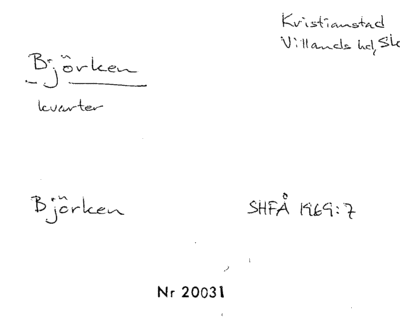 Kristianstad
Villands hd, Sk
Björken
kvarter
Björken
SHFÅ 1969:7
Nr 20031